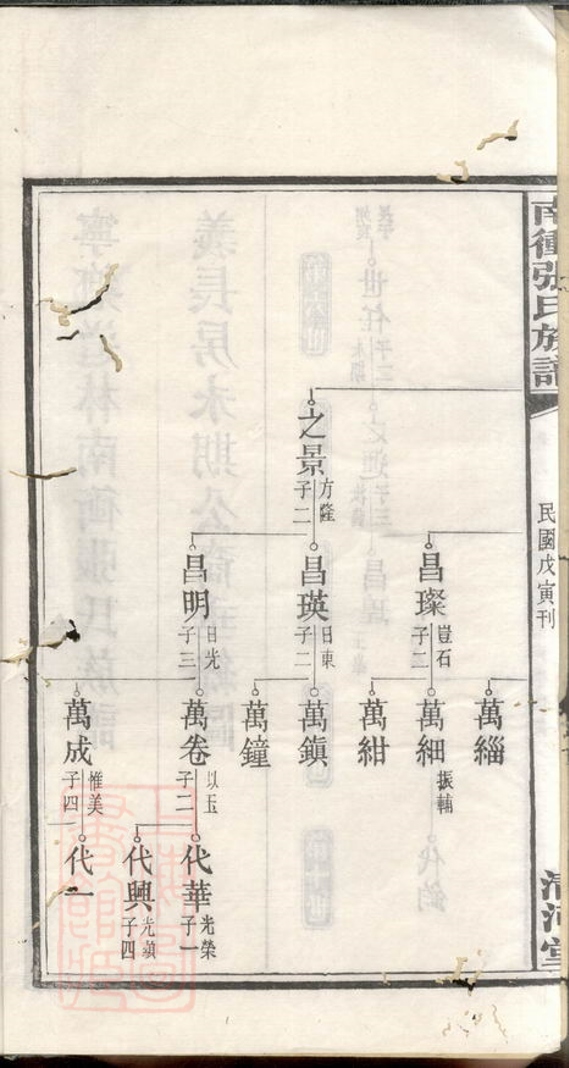 南衝張氏族譜
民國戊寅刊
清河堂
之景
方隆
子二
昌璨
豈石
子二
昌瑛
日東
子二
昌明
日光
子三
萬緇
萬細
振輔
萬紺
萬鎮
萬鐘
萬卷
以玉
子二
萬成
惟美
子四
代華
光榮
子一
代興
子四
代一